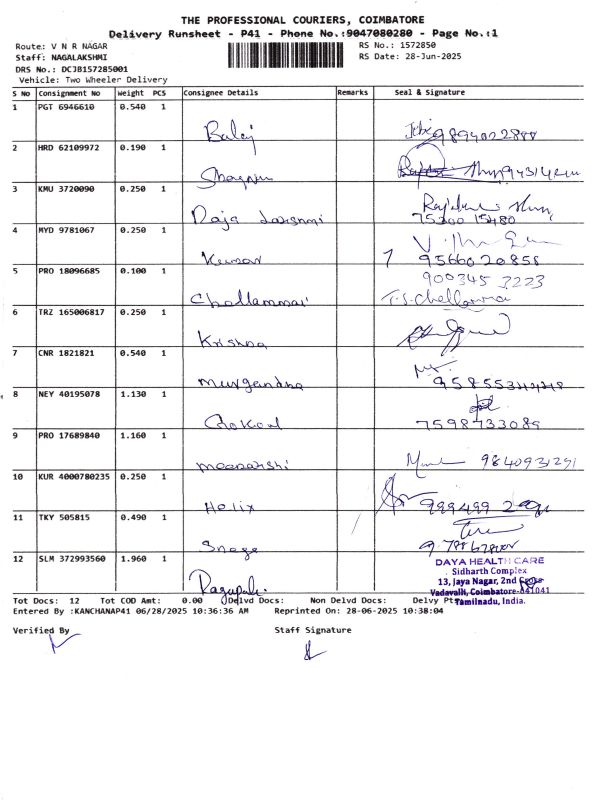 THE PROFESSIONAL COURIERS, COIMBATORE
Delivery Runsheet - P41 - Phone No.:9047080280 - Page No.:1
Route: V N R NAGAR
RS No.: 1572850
Staff: NAGALAKSHMI
RS Date: 28-Jun-2025
DRS No.: DCJB157285001
Vehicle: Two Wheeler Delivery
S No Consignment No Weight PCS Consignee Details Remarks Seal & Signature
1 PGT 6946610 0.540 1
Balaj 9894022888
2 HRD 62109972 0.190 1
3 KMU 3720090 0.250 1
Raja Laxshmi 75300 15480
4 MYD 9781067 0.250 1
Kumar 9566020858
5 PRO 18096685 0.100 1
900345 3223
Chellammai T.S.Chellamma
6 TRZ 165006817 0.250 1
Krishna
7 CNR 1821821 0.540 1
Murgendra
8 NEY 40195078 1.130 1
Gokul 7598733089
9 PRO 17689840 1.160 1
meenakshi 9840931291
10 KUR 4000780235 0.250 1
Helix 999499
11 TKY 505815 0.490 1
Snega
12 SLM 372993560 1.960 1
DAYA HEALTH CARE
Sidharth Complex
13, Jaya Nagar, 2nd Cross
Vadavalli, Coimbatore-641041
Tamilnadu, India.
Tot Docs: 12 Tot COD Amt: 0.00 Delvd Docs: Non Delvd Docs: Delvy Pts
Entered By :KANCHANAP41 06/28/2025 10:36:36 AM Reprinted On: 28-06-2025 10:38:04
Verified By Staff Signature